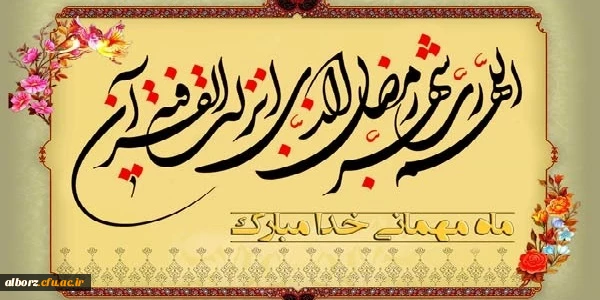 اللهم رب شهر رمضان الذی انزلت فیه القرآن
ماه مهمانی خدا مبارک
alborz.cfu.ac.ir